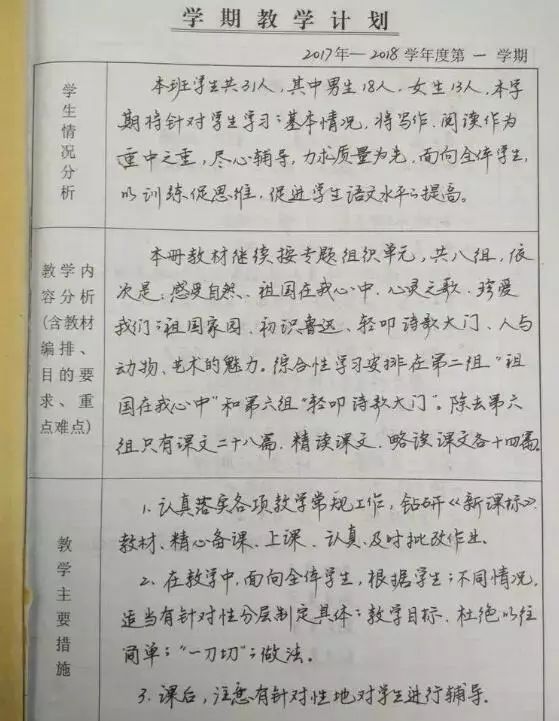 学期教学计划
2017年—2018学年度第一学期
学生情况分析
本班学生共31人，其中男生18人，女生13人，本学
期将针对学生学习的基本情况，将写作、阅读作为
重中之重，尽心辅导，力求质量为先，面向全体学生，
以训练促思维，促进学生语文水平的提高。
教学内
容分析
(含教材
编排、
目的要
求、重
点难点)
本册教材继续按专题组织单元，共八组，依
次是：感受自然、祖国在我心中、心灵之歌、珍爱
我们的祖国家园、初识鲁迅、轻叩诗歌大门、人与
动物、艺术的魅力。综合性学习安排在第二组“祖
国在我心中”和第六组“轻叩诗歌大门”。除去第六
组只有课文二十八篇，精读课文、略读课文各十四篇。
教学主要措施
1、认真落实各项教学常规工作，钻研《新课标》、
教材、精心备课、上课、认真、及时批改作业。
2、在教学中，面向全体学生，根据学生的不同情况，
适当有针对性分层制定具体的教学目标，杜绝以往
简单的“一刀切”的做法。
3、课后，注意有针对性地对学生进行辅导。